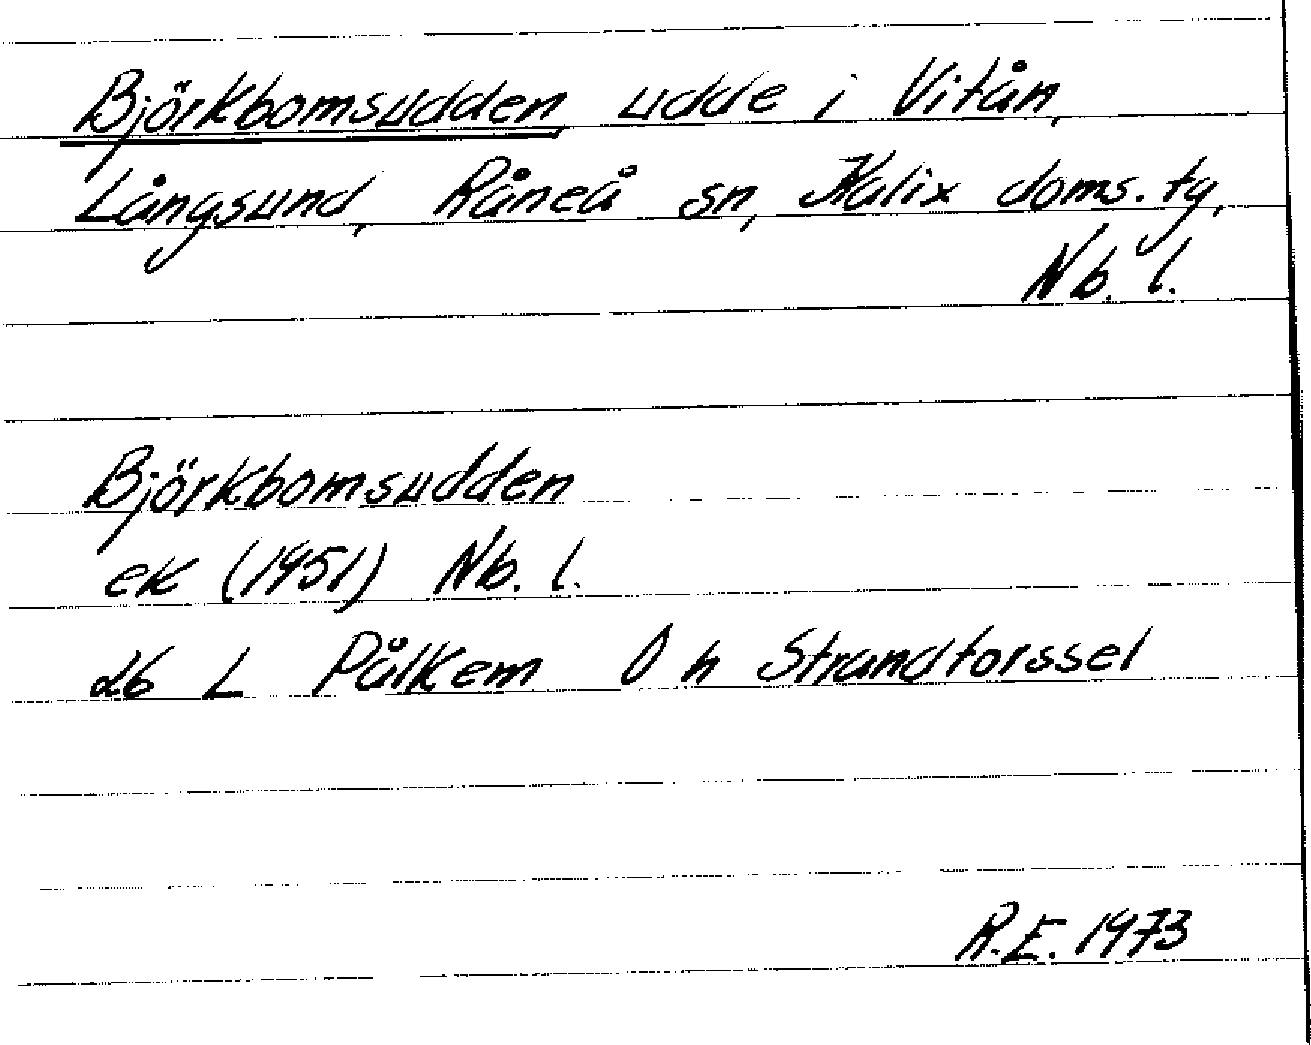 Björkbomsudden udde i Vitån,
Långsund, Råneå sn, Kalix doms. tg,
Nb. l.
Björkbomsudden
ek (1951) Nb. l.
26 L Pålkem O h Strandtorssel
R.E. 1973